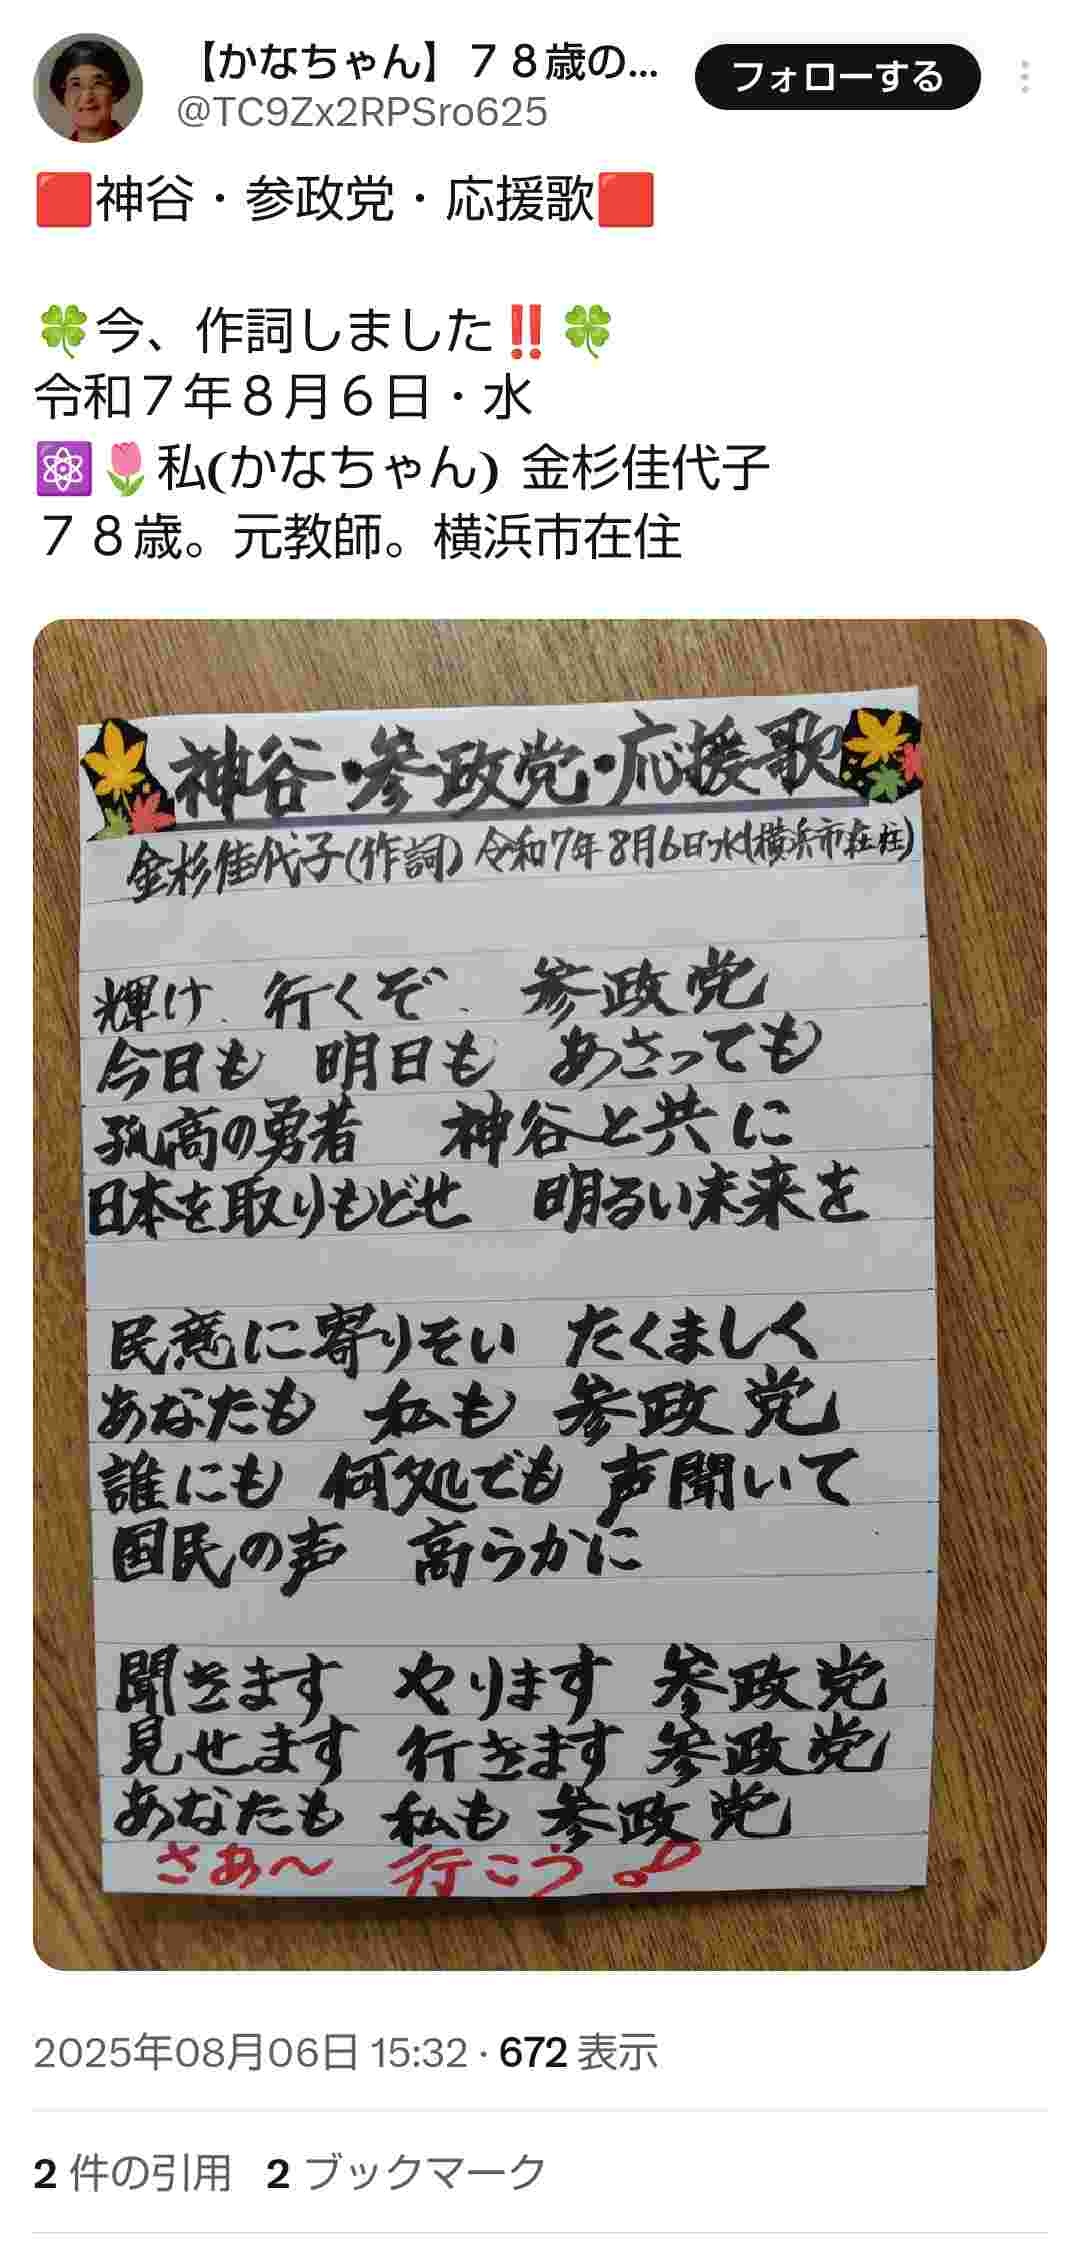 【かなちゃん】７８歳の...
フォローする
@TC9Zx2RPSro625
🟥神谷・参政党・応援歌🟥
🍀今、作詞しました‼️🍀
令和７年８月６日・水
⚛️🌷私(かなちゃん) 金杉佳代子
７８歳。元教師。横浜市在住
神谷・参政党・応援歌
金杉佳代子(作詞) 令和7年8月6日水(横浜市在住)
輝け、行くぞ、参政党
今日も 明日も あさっても
孤高の勇者 神谷と共に
日本を取りもどせ 明るい未来を
民意に寄りそい たくましく
あなたも 私も 参政党
誰にも 何処でも 声聞いて
国民の声 高らかに
聞きます やります 参政党
見せます 行きます 参政党
あなたも 私も 参政党
さあ〜 行こう♪
2025年08月06日 15:32 · 672 表示
2 件の引用 2 ブックマーク